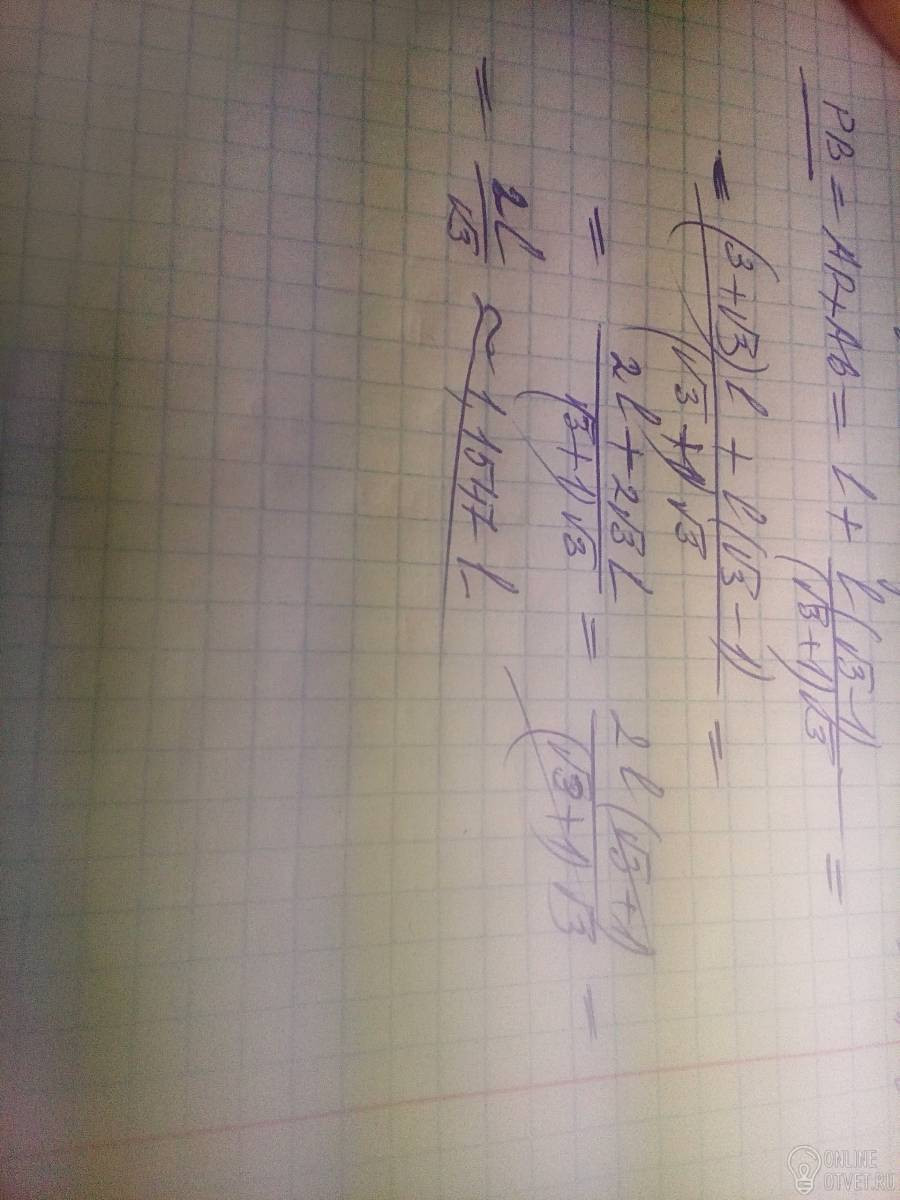 PB = AP + AB = l + l(√3 - 1) / (√3 + 1)√3 =
= (3 + √3)l + l(√3 - 1) / (√3 + 1)√3 =
= 2l + 2√3 l / (√3 + 1)√3 = 2l(√3 + 1) / (√3 + 1)√3 =
= 2l / √3 ≈ 1,1547 l
ONLINE
OTVET.RU